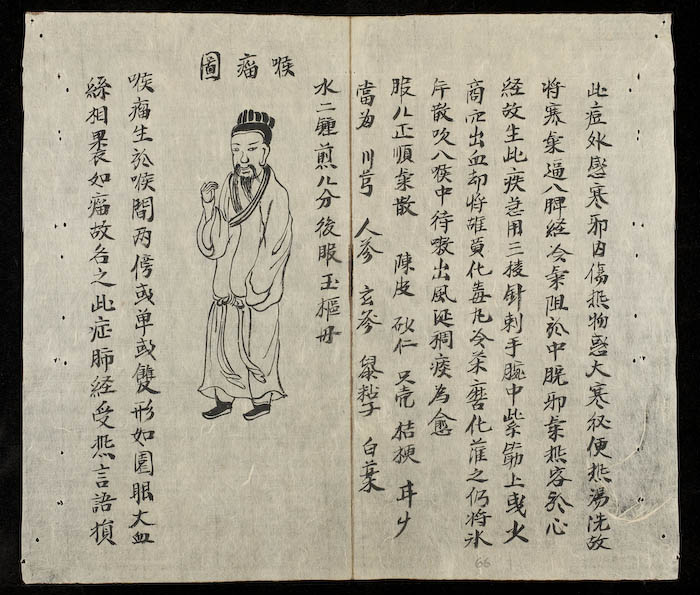 此症外感寒邪内傷热物惑大寒後便热湯洗故
将寒氣逼入脾経冷氣阻於中脘邪氣热客於心
経故生此疾急用三稜針刺手腕中紫筋上或火
商穴出血却将雄黄化毒丸冷茶磨化灌之仍将氷
片散吹入喉中待嗽出風涎稠痰為愈
服八正順氣散 陳皮 砂仁 只壳 桔梗
川芎 人參 玄參 鼠粘子 白葉
水二鍾煎八分後服玉樞丹
喉瘤圖
喉瘤生於喉間两傍或单或雙形如圓眼大血
絲相裹如瘤故名之此症肺経受热言語損
66